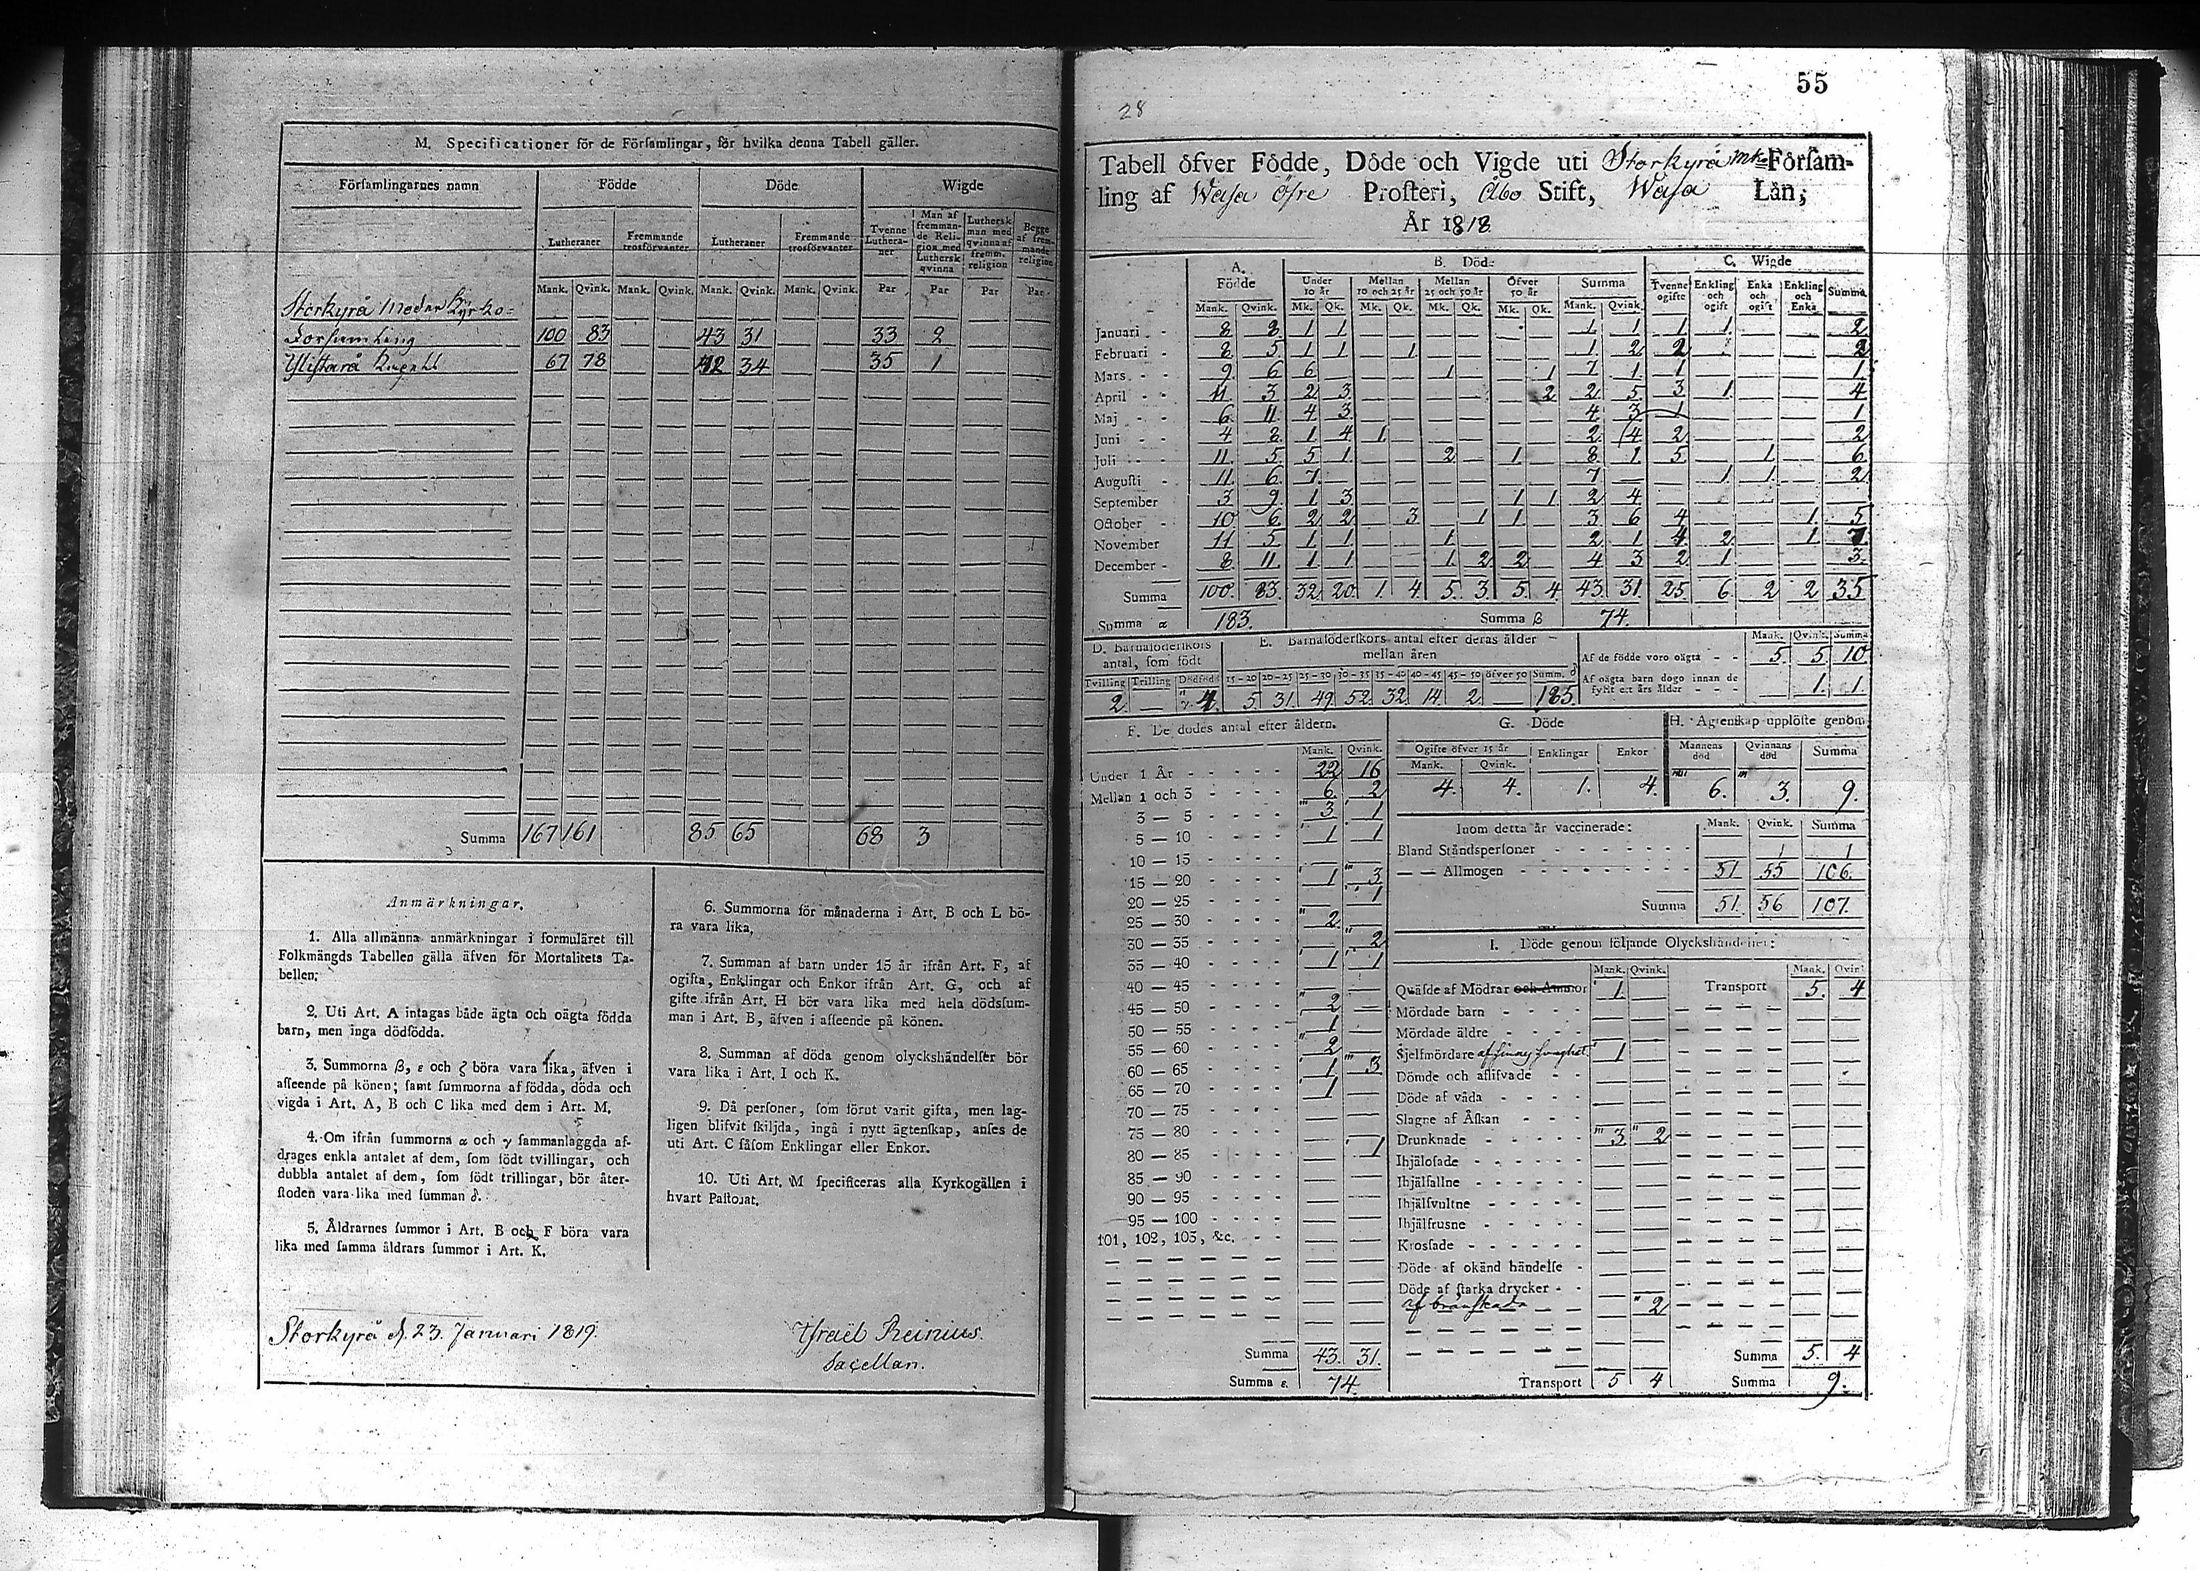 M. Specificationer för de Församlingar, för hvilka denna Tabell gäller.
Församlingarnes namn Födde Döde Wigde
Lutheraner Fremmande trosförvanter Lutheraner Fremmande trosförvanter Tvenne Lutheraner Man af fremmande Religion med Luthersk qvinna Luthersk man med qvinna af fremm. religion Begge af fremmande religion
Mank. Qvink. Mank. Qvink. Mank. Qvink. Mank. Qvink. Par Par Par Par
Storkyrå Moder Kyrko=
Församling 100 83 43 31 33 2
Ylistarå Kapell 67 78 42 34 35 1
Summa 167 161 85 65 68 3
Anmärkningar.
1. Alla allmänna anmärkningar i formuläret till
Folkmängds Tabellen gälla äfven för Mortalitets Ta-
bellen;
2. Uti Art. A intagas både ägta och oägta födda
barn, men inga dödfödda.
3. Summorna β, ε och ζ böra vara lika, äfven i
afseende på könen; samt summorna af födda, döda och
vigda i Art. A, B och C lika med dem i Art. M.
4. Om ifrån summorna α och γ sammanlaggda af-
drages enkla antalet af dem, som födt tvillingar, och
dubbla antalet af dem, som födt trillingar, bör åter-
stoden vara lika med summan δ.
5. Åldrarnes summor i Art. B och F böra vara
lika med samma åldrars summor i Art. K.
6. Summorna för månaderna i Art. B och L bö-
ra vara lika.
7. Summan af barn under 15 år ifrån Art. F, af
ogifta, Enklingar och Enkor ifrån Art. G, och af
gifte ifrån Art. H bör vara lika med hela dödsfum-
man i Art. B, äfven i afseende på könen.
8. Summan af döda genom olyckshändelser bör
vara lika i Art. I och K.
9. Då personer, som förut varit gifta, men lag-
ligen blifvit skiljda, ingå i nytt ägtenskap, anses de
uti Art. C såsom Enklingar eller Enkor.
10. Uti Art. M specificeras alla Kyrkogällen i
hvart Pastorat.
Storkyrå d. 23. Januari 1819.
Israël Reinius.
Sacellan.
55
28
Tabell öfver Födde, Döde och Vigde uti Storkyrå Församling
ling af Wasa Öfre Prosteri, Åbo Stift, Wasa Län,
År 1818
A. Födde B. Döde C. Wigde
Under 10 år Mellan 10 och 25 år Mellan 25 och 50 år Öfver 50 år Summa Tvenne ogifte Enkling och ogift Enka och ogift Enkling och Enka Summa
Mank. Qvink. Mk. Qk. Mk. Qk. Mk. Qk. Mk. Qk. Mank. Qvink.
Januari 8 8 1 1 1 1 1 1 2
Februari 8 5 1 1 1 1 2 2 2
Mars 9 6 6 1 1 7 1 1 1
April 11 3 2 3 2 2 5 3 1 4
Maj 6 11 4 3 4 3 1 1
Juni 4 8 1 4 1 2 4 2 2
Juli 11 5 5 1 2 1 8 1 5 1 6
Augusti 11 6 7 7 1 1 2
September 3 9 1 3 1 1 2 4
October 10 6 2 2 3 1 1 3 6 4 1 5
November 11 5 1 1 1 2 1 4 2 1 7
December 8 11 1 1 1 2 2 4 3 2 1 3
Summa 100 83 32 20 1 4 5 3 5 4 43 31 25 6 2 2 35
Summa α 183. Summa β 74.
D. Barnaföderskors antal, som födt
Tvilling Trilling Dödfödd
2 — γ 4.
E. Barnaföderskors antal efter deras ålder mellan åren
15-20 20-25 25-30 30-35 35-40 40-45 45-50 öfver 50 Summ. δ
5 31 49 52 32 14 2 — 185.
Mank. Qvink. Summa
Af de födde voro oägta 5 5 10
Af oägta barn dogo innan de
fyllt ett års ålder 1 1
F. De dödes antal efter åldern.
Mank. Qvink.
Under 1 År 22 16
Mellan 1 och 3 6 2
3 — 5 3 1
5 — 10 1 1
10 — 15
15 — 20 1 3
20 — 25 1
25 — 30 2
30 — 35 2
35 — 40 1 1
40 — 45
45 — 50 2
50 — 55 1
55 — 60 2
60 — 65 1 3
65 — 70 1
70 — 75
75 — 80
80 — 85 1
85 — 90
90 — 95
95 — 100
101, 102, 103, &c.
Summa 43. 31.
Summa ε. 74.
G. Döde
Ogifte öfver 15 år Enklingar Enkor
Mank. Qvink.
4. 4. 1. 4.
H. Ägtenskap upplöste genom
Mannens död Qvinnans död Summa
6. 3. 9.
Inom detta år vaccinerade: Mank. Qvink. Summa
Bland Ståndspersoner 1 1
— — Allmogen 51 55 106.
Summa 51 56 107.
I. Döde genom följande Olyckshändelser:
Mank. Qvink. Mank. Qvink.
Quäfde af Mödrar och Ammor 1. Transport 5. 4
Mördade barn
Mördade äldre
Sjelfmördare af sinnes svaghet 1
Dömde och aflifvade
Döde af våda
Slagne af Åskan
Drunknade 3 2
Ihjälosade
Ihjälfallne
Ihjälsvultne
Ihjälfrusne
Krossade
Döde af okänd händelse
Döde af starka drycker
af brännskada 2
Summa 5. 4
Transport 5 4 Summa 9.